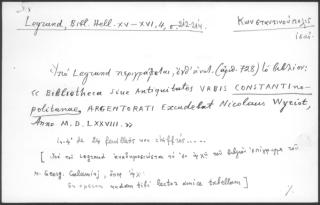 Legrand, Bibl. Hell. XV–XVI, 4, σ. 212-214.
Κωνσταντινούπολις
Ὑπὸ Legrand περιγράφεται, ὑπ' ἀριθ. 728) τὸ βιβλίον:
« Bibliotheca siue Antiquitates URBIS CONSTANTINO-
politanae, ARGENTORATI Excudebat Nicolaus Wyriot,
Anno M.D.LXXVIII. »
in-4° de 24 feuillets non chiffrés.....
[ τοῦ Legrand ἐν ἀρχῇ τοῦ βιβλίου ἐπίγραμμα τοῦ
M. Georg. Calaminj,
En operam nudam tibi lector amice tabellam ]